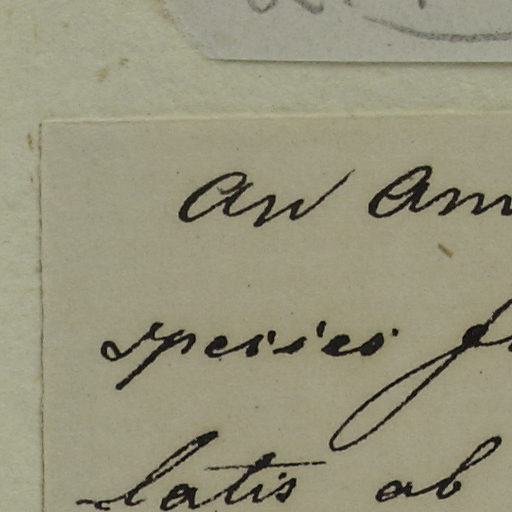 an am
species f
latis ab